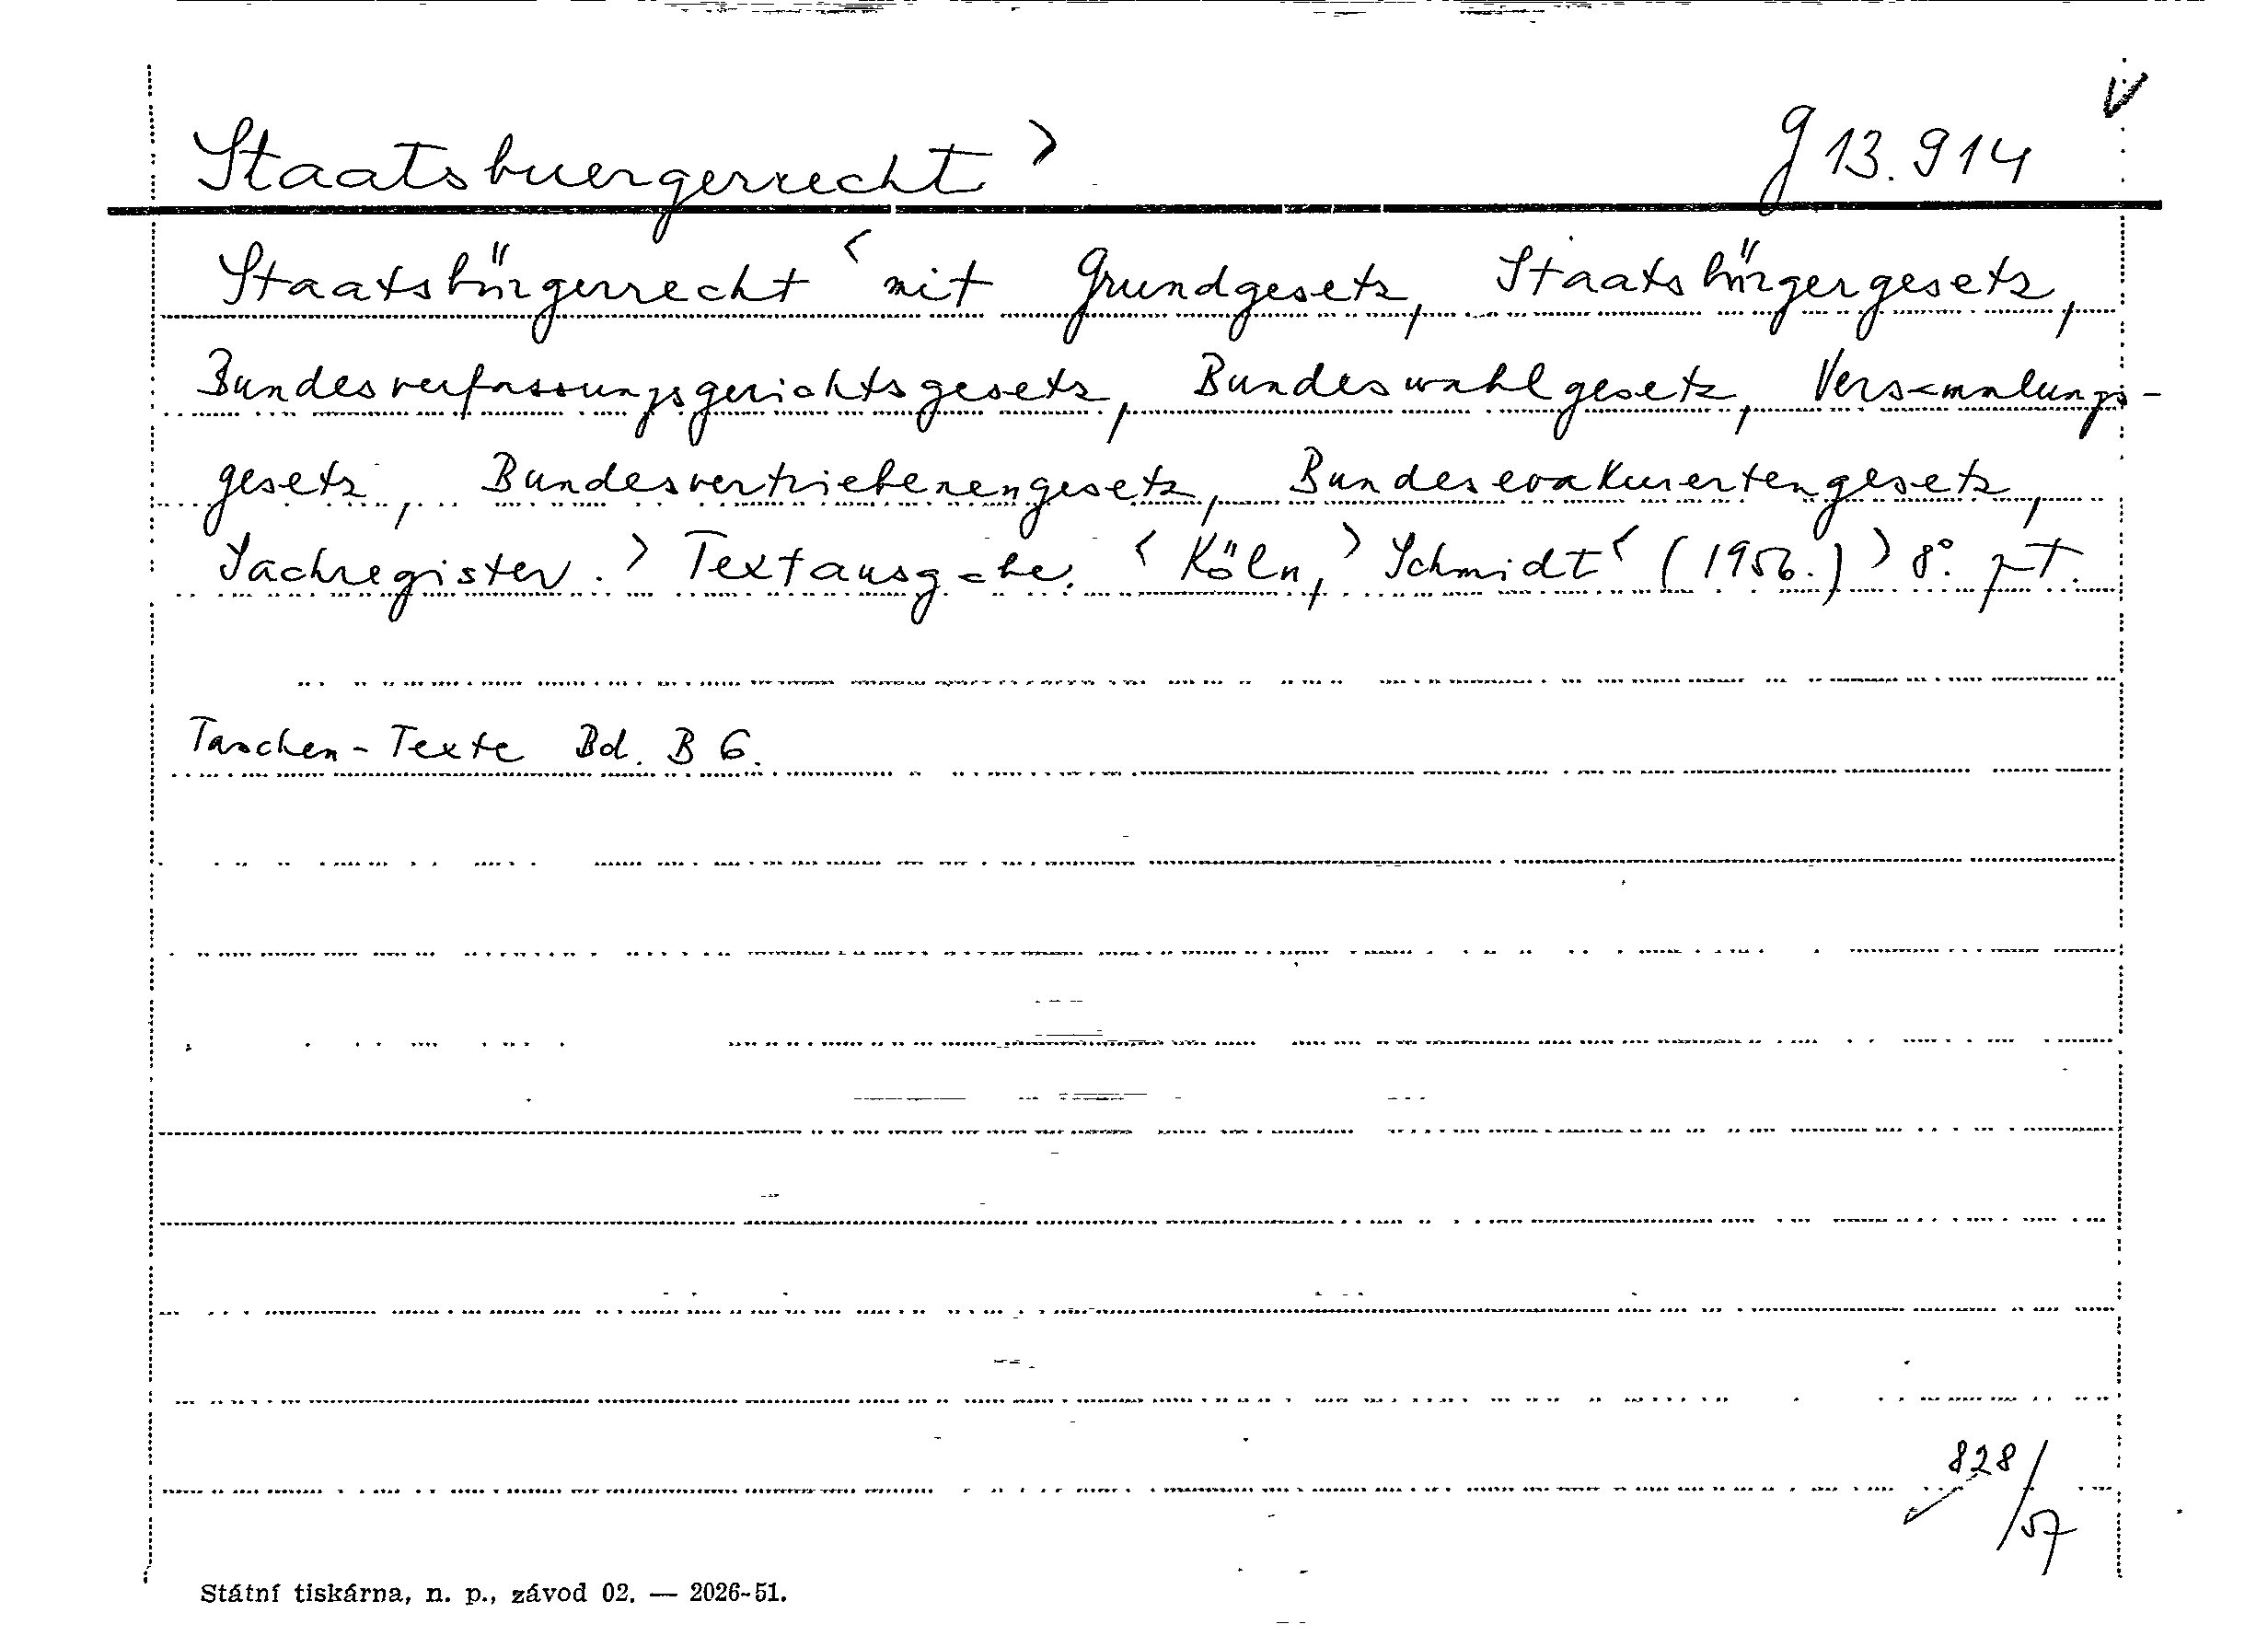 V
Staatsbuergerrecht > g 13.914
Staatsbürgerrecht < mit Grundgesetz, Staatsbürgergesetz,
Bundesverfassungsgerichtsgesetz, Bundeswahlgesetz, Versammlungs-
gesetz, Bundesvertriebenengesetz, Bundesevakuiertengesetz,
Sachregister. > Textausgabe. < Köln, > Schmidt < (1956.) > 8°.
Taschen-Texte Bd. B 6.
828/57
Státní tiskárna, n. p., závod 02. — 2026-51.